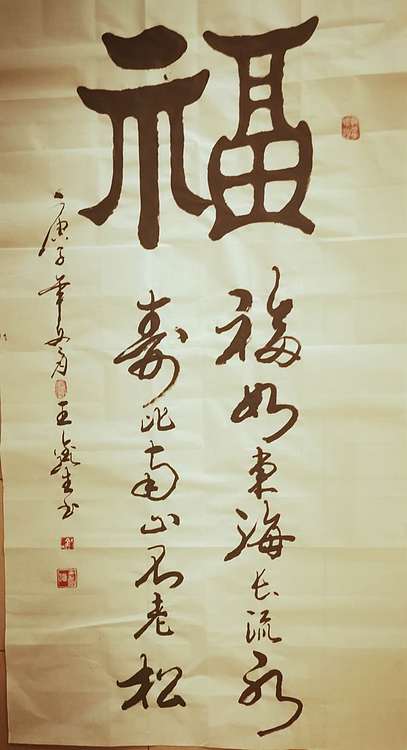 福
福如東海长流水
寿比南山不老松
庚子 王 生书